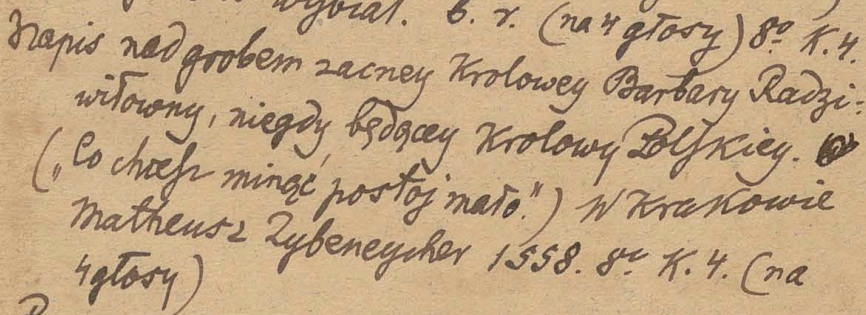 wybiał. b. r. (na 4 głosy) 8º K. 4.
Napis nad grobem zacney Krolowey Barbary Radzi-
wiłowny, niegdy będącey Krolowy Polskiey.
(„Co chcesz minąć, postój mało.") W Krakowie
Matheusz Zybeneycher 1558. 8º K. 4. (na
4 głosy)